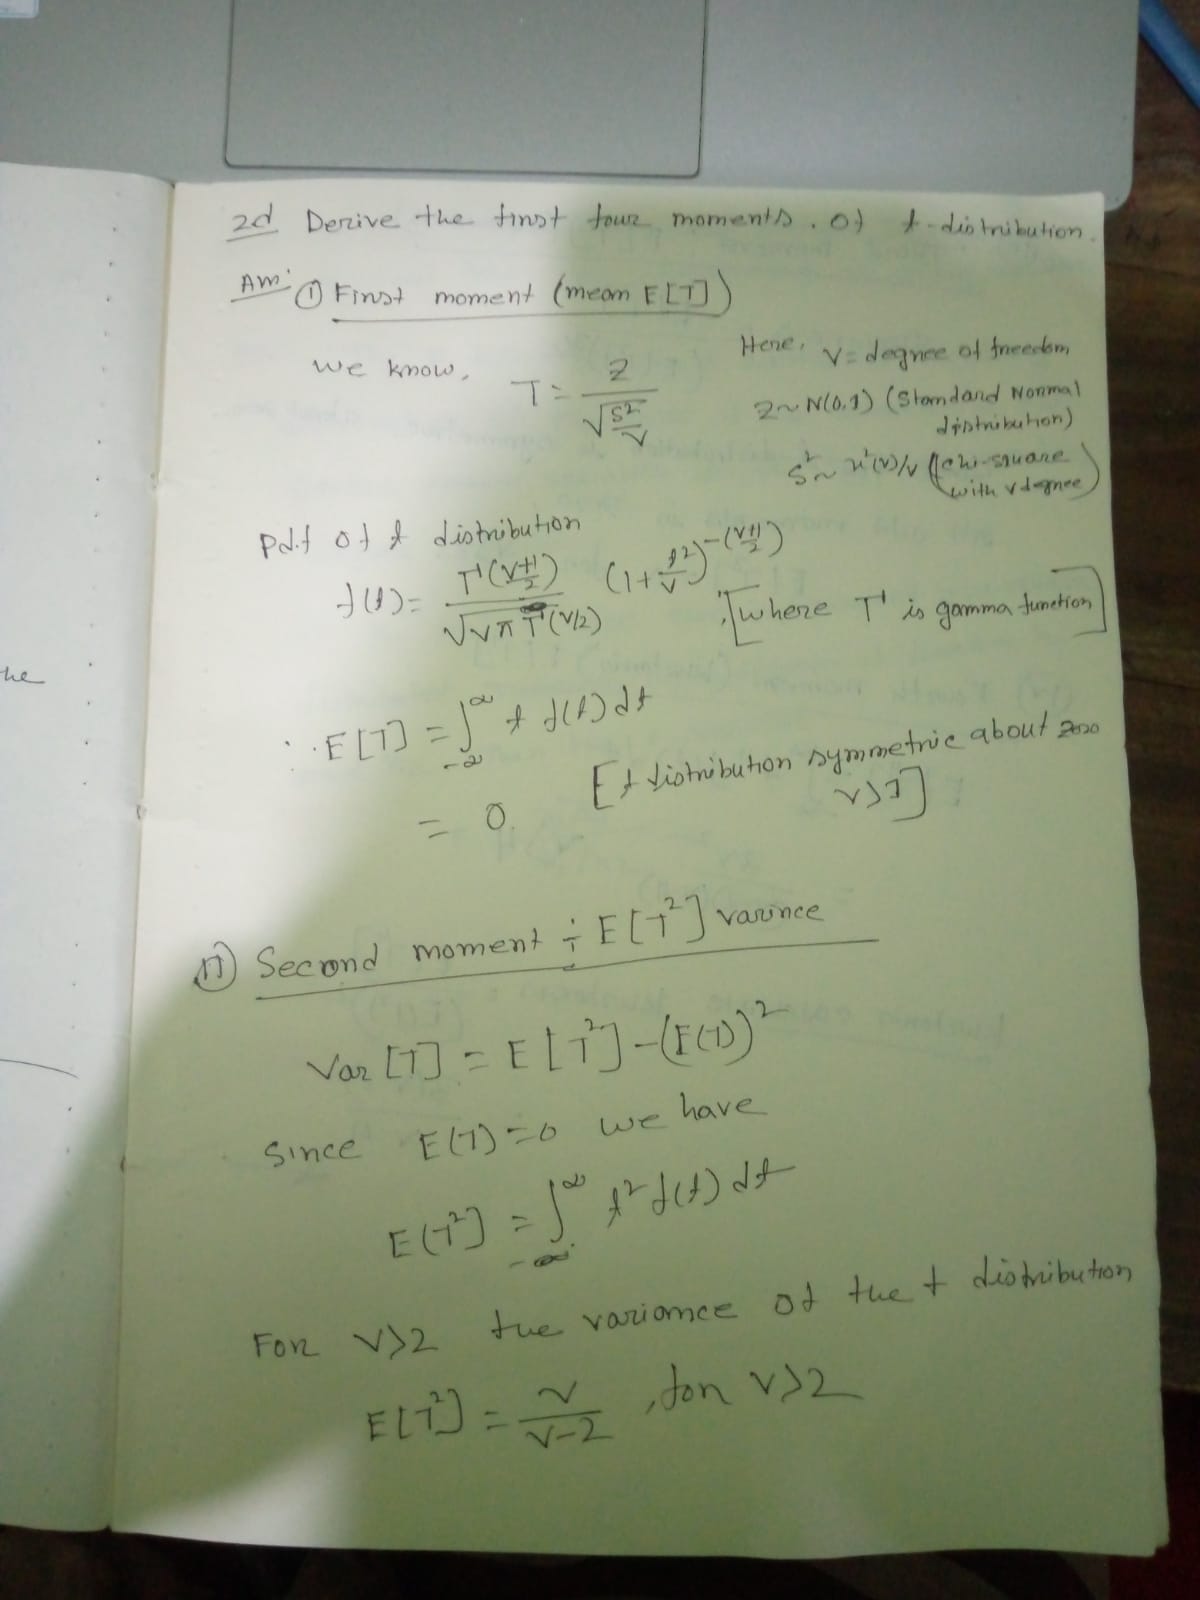 2d Derive the first four moments. of t-distribution.
Ans: ① First moment (mean E[T])
We know, T = Z / √(S²/V)
Here, V = degree of freedom
Z ~ N(0,1) (Standard Normal distribution)
S² ~ χ²(v)/v (chi-square with v degree)
Pdf of t distribution
f(t) = Γ((V+1)/2) / (√(Vπ) Γ(V/2)) (1 + t²/V)^-((V+1)/2) , [where Γ is gamma function]
∴ E[T] = ∫_{-∞}^{∞} t f(t) dt
= 0. [t distribution symmetric about zero
v>1]
⑪ Second moment ÷ E[T²] varince
Var [T] = E[T²] - (E(T))²
Since E(T) = 0 we have
E(T²] = ∫_{-∞}^{∞} t² f(t) dt
For V>2 the variance of the t distribution
E[T²] = V / (V-2) , for V>2
he